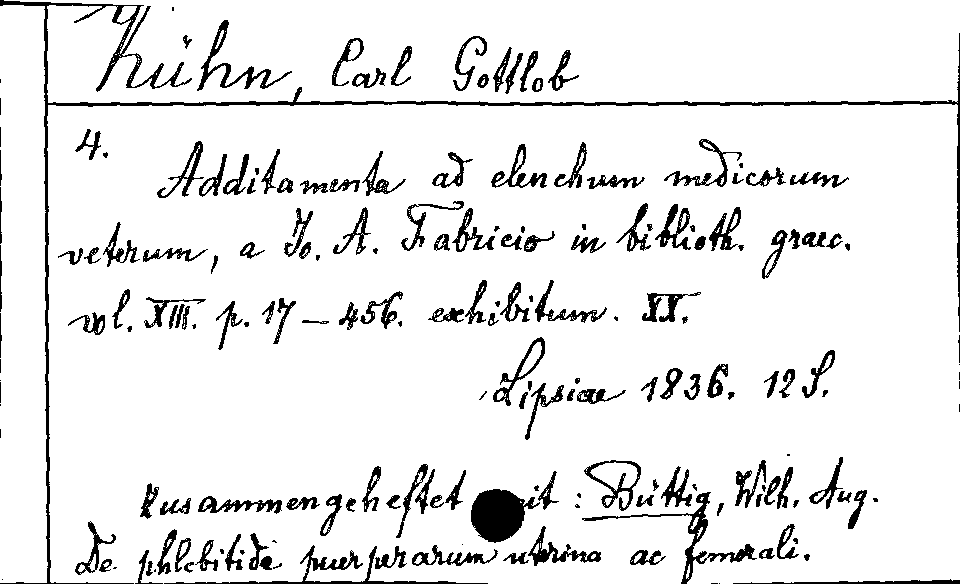 Kühn, Carl Gottlob
4.
Additamenta ad elenchum medicorum
veterum, a Jo. A. Fabricio in biblioth. graec.
vol. XIII. p. 17 – 456. exhibitum. XX.
Lipsiae 1836. 12 S.
Zusammengeheftet mit: Büttig, Wilh. Aug.
De phlebitide puerperarum uterina ac femorali.